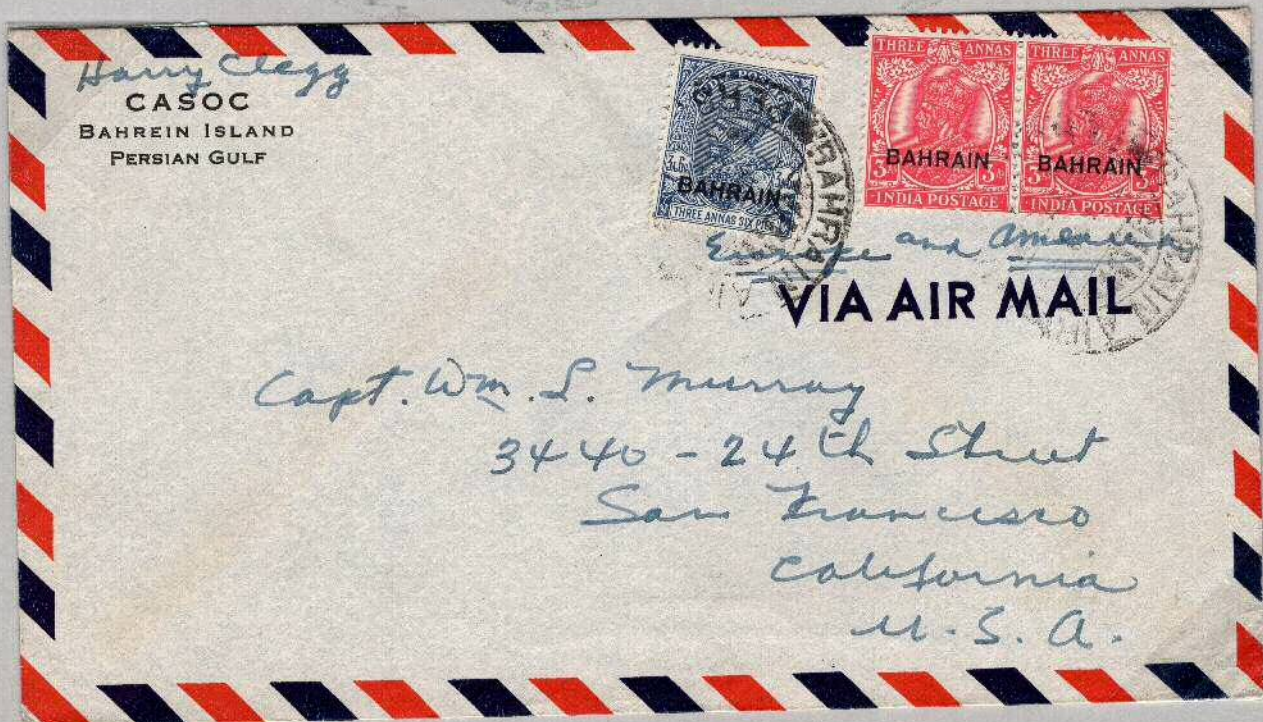 Harry Clegg
CASOC
BAHREIN ISLAND
PERSIAN GULF
INDIA POSTAGE
BAHRAIN
THREE ANNAS SIX PIES
THREE ANNAS
BAHRAIN
INDIA POSTAGE
THREE ANNAS
BAHRAIN
INDIA POSTAGE
BAHRAIN
BAHRAIN
Europe and America
VIA AIR MAIL
Capt. Wm. S. Murray
3440 - 24th Street
San Francisco
California
U.S.A.